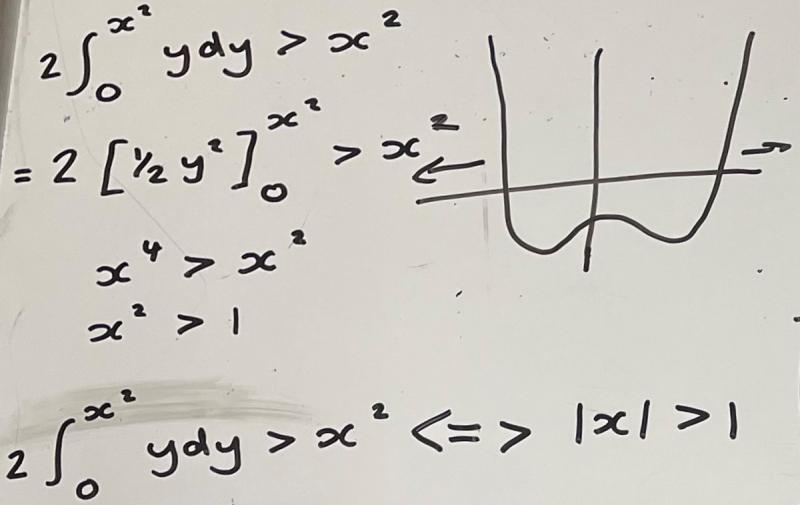 2∫₀^{x²} ydy > x²
= 2 [½ y²]₀^{x²} > x²
x⁴ > x²
x² > 1
2∫₀^{x²} ydy > x² <=> |x| > 1